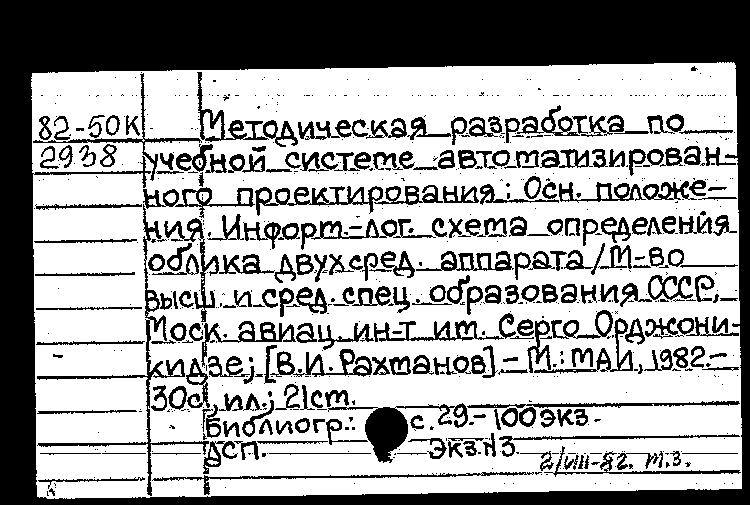 82-50К Методическая разработка по
2938 учебной системе автоматизирован-
ного проектирования: Осн. положе-
ния. Информ.-лог. схема определения
облика двухсред. аппарата / М-во
высш. и сред. спец. образования СССР,
Моск. авиац. ин-т им. Серго Орджони-
кидзе; [В.И. Рахманов] - М.: МАИ, 1982.-
30с., ил.; 21см.
Библиогр.: с. 29.- 100 экз.
ДСП. Экз.№3
2/VIII-82. т.з.